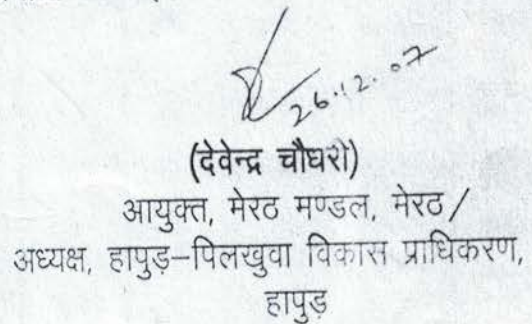 26.12.07
(देवेन्द्र चौधरी)
आयुक्त, मेरठ मण्डल, मेरठ/
अध्यक्ष, हापुड़-पिलखुवा विकास प्राधिकरण,
हापुड़